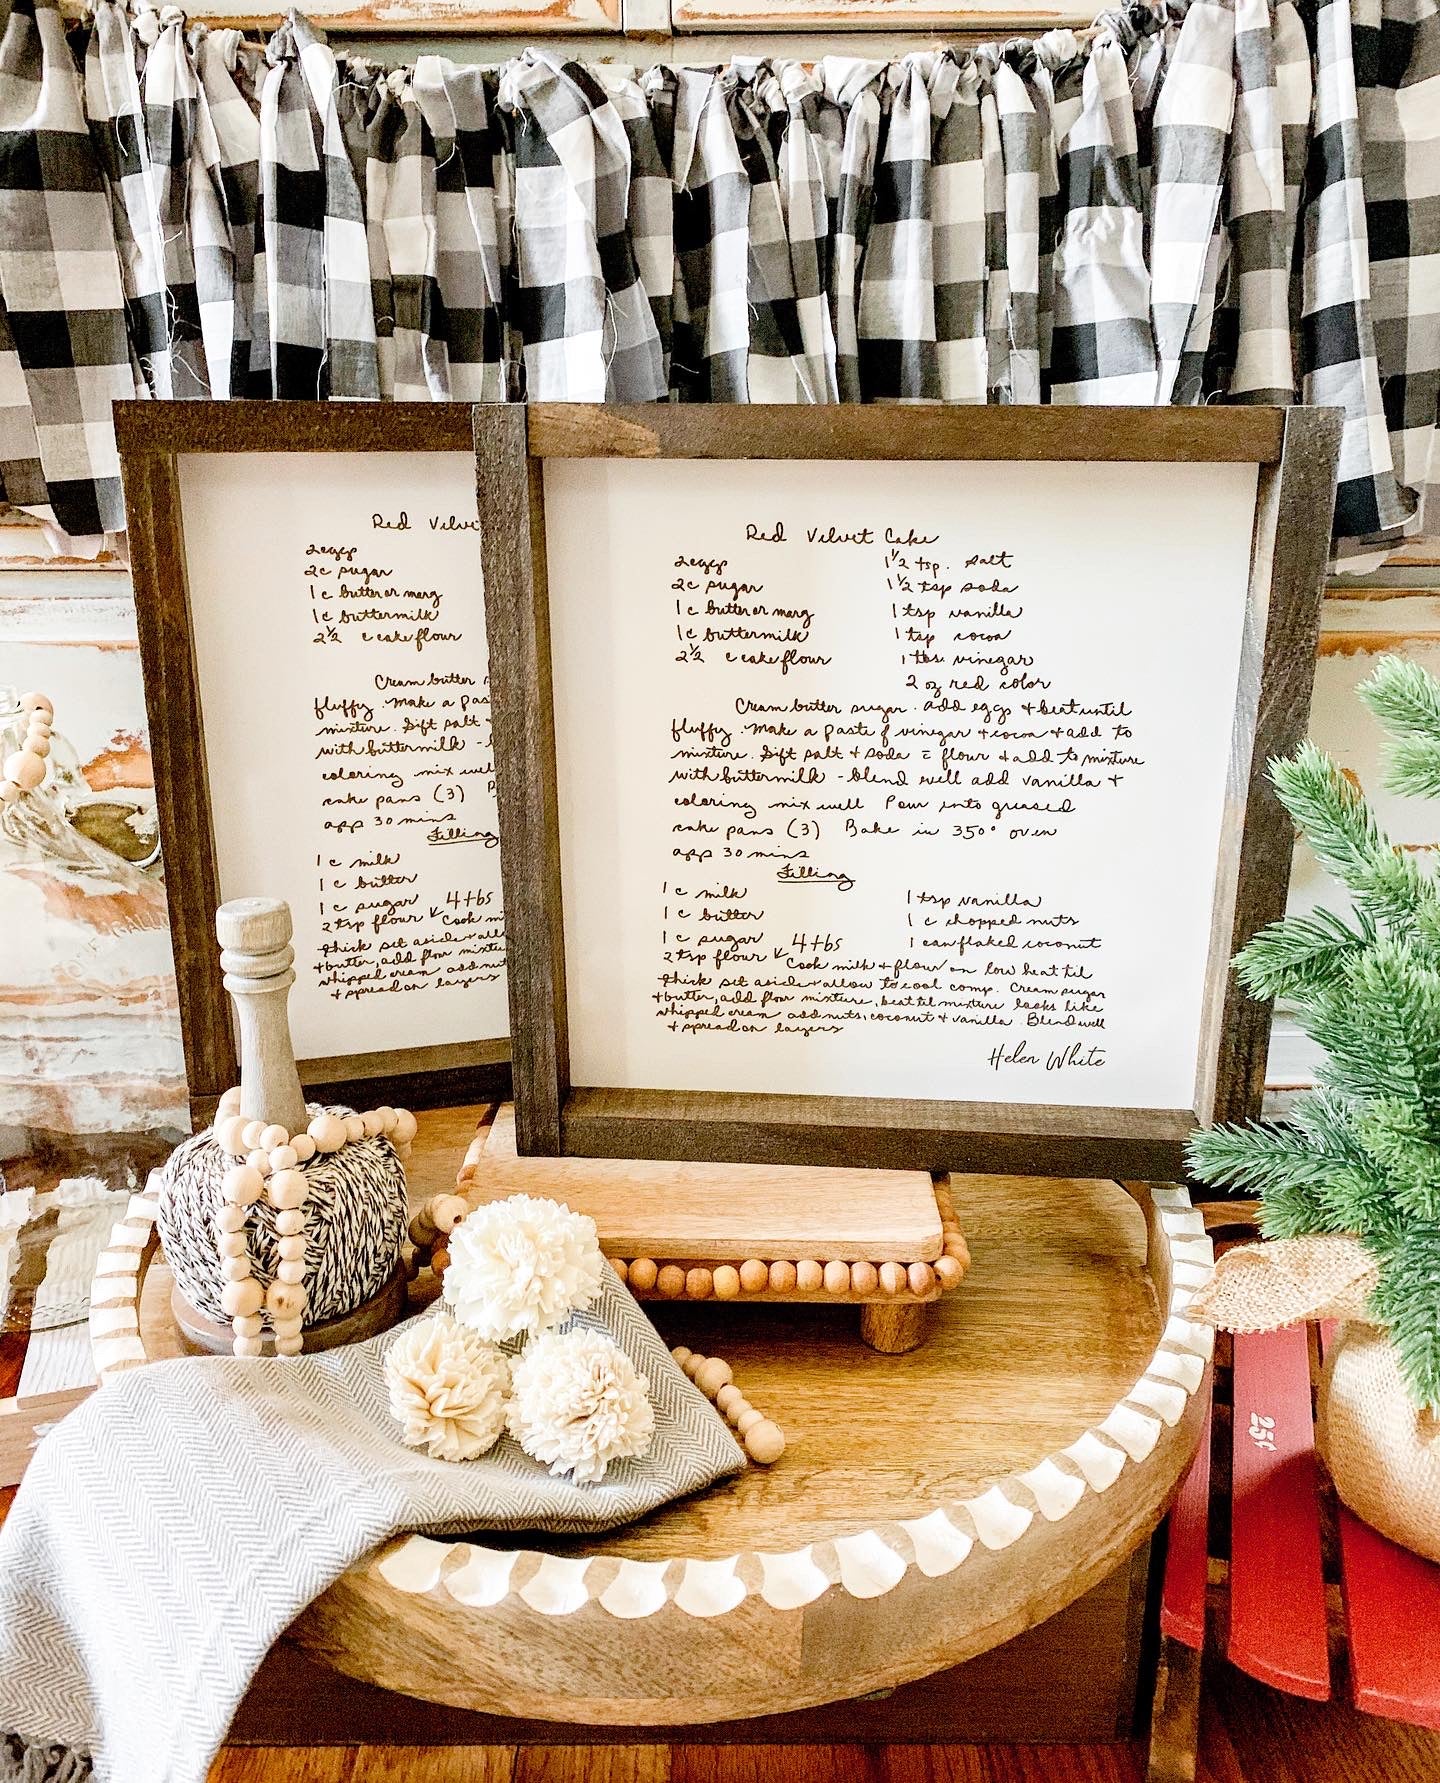 Red Velvet
2 eggs
2c sugar
1 c butter or marg
1 c buttermilk
2 1/2 c cake flour
Cream butter
fluffy. Make a pas
mixture. Sift salt +
with buttermilk -
coloring mix well
cake pans (3)
app 30 mins
Filling
1 c milk
1 c butter
1 c sugar
2 tsp flour ↙ 4 tbs
Cook mi
thick set aside + allo
+ butter, add flour mixtu
whipped cream add nut
+ spread on layers
Red Velvet Cake
2 eggs
2c sugar
1 c butter or marg
1 c buttermilk
2 1/2 c cake flour
1 1/2 tsp. salt
1 1/2 tsp soda
1 tsp vanilla
1 tsp cocoa
1 tbs. vinegar
2 oz red color
Cream butter sugar. add eggs + beat until
fluffy. Make a paste of vinegar + cocoa + add to
mixture. Sift salt + soda = flour + add to mixture
with buttermilk - blend well add vanilla +
coloring mix well Pour into greased
cake pans (3) Bake in 350° oven
app 30 mins
Filling
1 c milk
1 c butter
1 c sugar
2 tsp flour ↙ 4 tbs
1 tsp vanilla
1 c chopped nuts
1 can flaked coconut
Cook milk + flour on low heat til
thick set aside + allow to cool comp. Cream sugar
+ butter, add flour mixture, beat til mixture looks like
whipped cream add nuts, coconut + vanilla. Blend well
+ spread on layers
Helen White
25¢